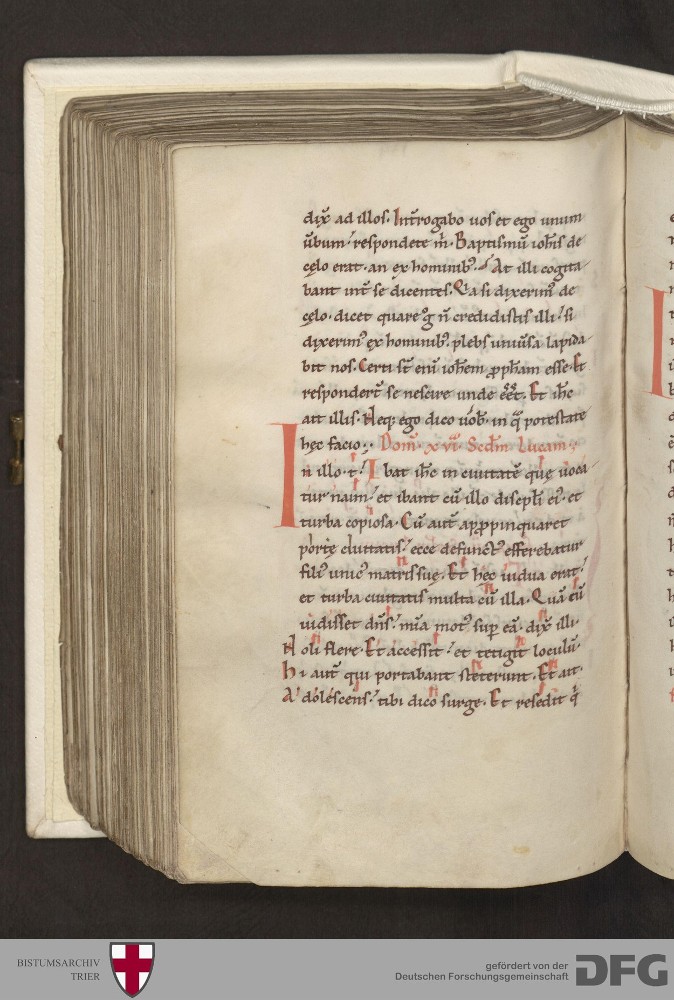 dix̄ ad illos. Int̄rogabo uos et ego unum
ūbum; respondete m̄. Baptismū ioh̄is de
cęlo erat. an ex hominib; At illi cogita
bant int̄ se dicentes. Q̄a si dixerim᾽ de
cęlo. dicet quare g̊ n̄ credidistis illi; si
dixerim᾽ ex hominib; plebs uniūsa lapida
bit nos. Certi s̄t eni ioh̄em ꝓph̄am esse. Et
respondert̄ se nescire unde eēt. Et ih̄c
ait illis. Neq; ego dico uob̄. in q̄ potestate
hęc facio; Dom̄. xvı. Sc̄dm Lucam;
In illo t. Ibat ih̄c in ciuitatē que uoca
tur naim; et ibant cū illo discipl̄i ei᾽. et
turba copiosa. Cū aut̄ apꝓpinquaret
portę ciuitatis; ecce defunct᾽ efferebatur
fili᾽ unic᾽ matris suę. Et hęc uidua erat;
et turba ciuitatis multa cū illa. Quā cū
uidisset dn̄s; mīa mot᾽ sup̄ eā. dix̄ illi.
Noli flere. Et accessit; et tetigit loculū.
Hi aut̄ qui portabant steterunt. Et ait.
Adolescens; tibi dico surge. Et resedit q̄
BISTUMSARCHIV
TRIER
gefördert von der
Deutschen Forschungsgemeinschaft
DFG